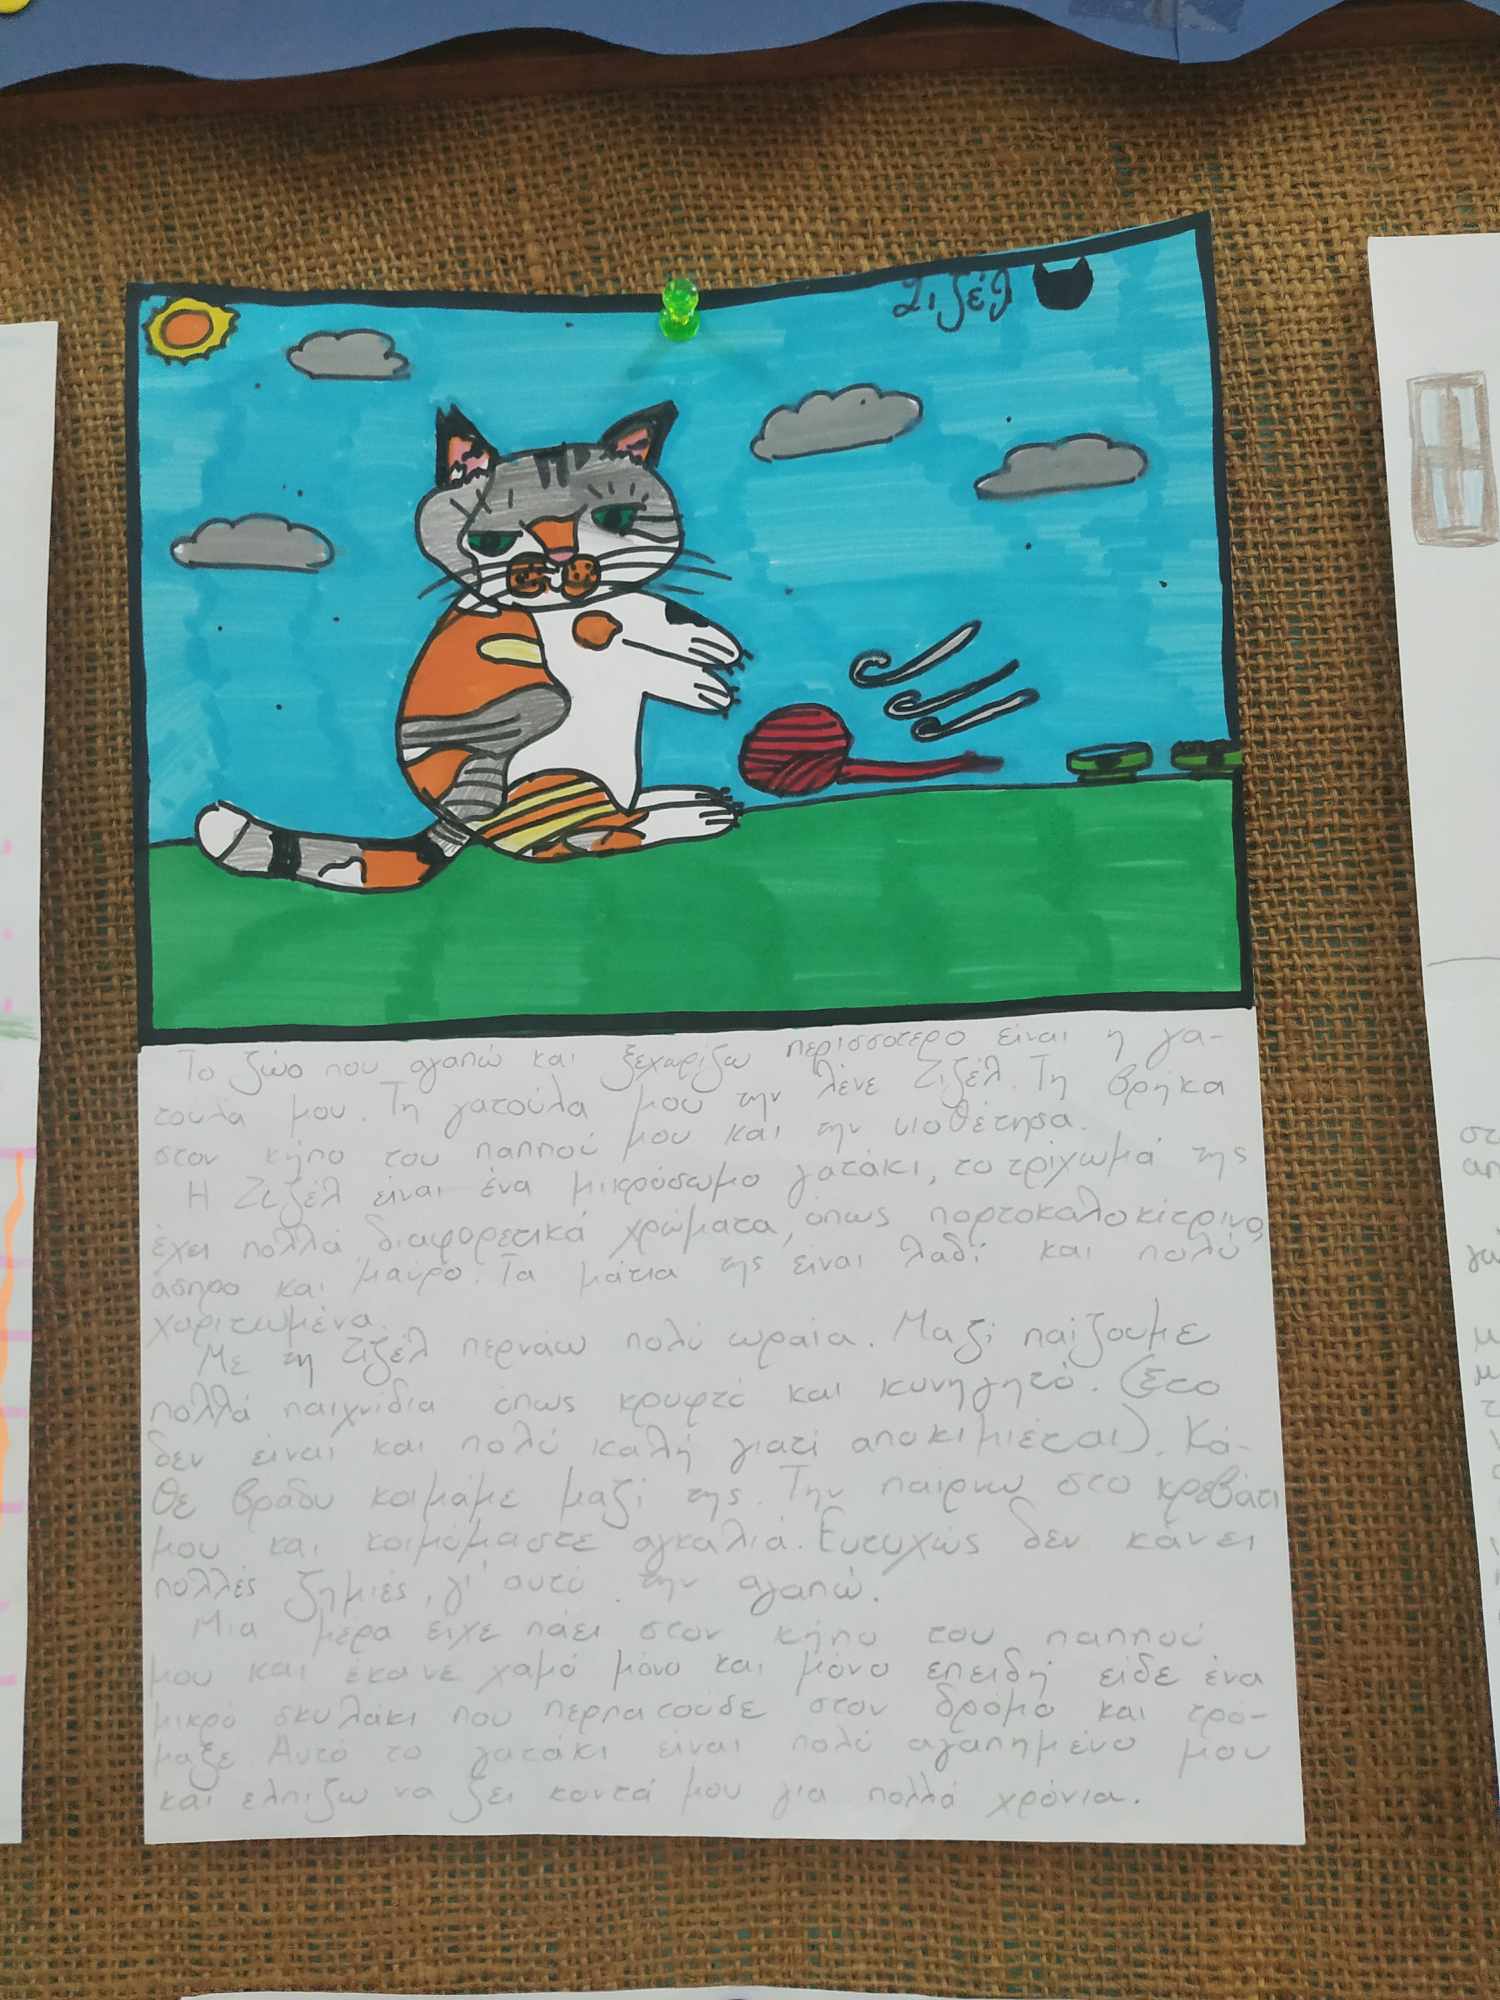 Ζιζέλ
Το ζώο που αγαπώ και ξεχωρίζω περισσότερο είναι η γα-
τούλα μου. Τη γατούλα μου την λένε Ζιζέλ. Τη βρήκα
στον κήπο του παππού μου και την υιοθέτησα.
Η Ζιζέλ είναι ένα μικρόσωμο γατάκι, το τρίχωμά της
έχει πολλά διαφορετικά χρώματα, όπως πορτοκαλοκίτρινο,
άσπρο και μαύρο. Τα μάτια της είναι λαδί και πολύ
χαριτωμένα.
Με τη Ζιζέλ περνάω πολύ ωραία. Μαζί παίζουμε
πολλά παιχνίδια όπως κρυφτό και κυνηγητό. (Στο
δεν είναι και πολύ καλή γιατί αποκιμιέται). Κά-
θε βράδυ κοιμάμε μαζί της. Την παίρνω στο κρεβάτι
μου και κοιμόμαστε αγκαλιά. Ευτυχώς δεν κάνει
πολλές ζημιές, γι' αυτό την αγαπώ.
Μια μέρα είχε πάει στον κήπο του παππού
μου και έκανε χαμό μόνο και μόνο επειδή είδε ένα
μικρό σκυλάκι που περπατούδε στον δρόμο και τρό-
μαξε. Αυτό το γατάκι είναι πολύ αγαπημένο μου
και ελπίζω να ζει κοντά μου για πολλά χρόνια.